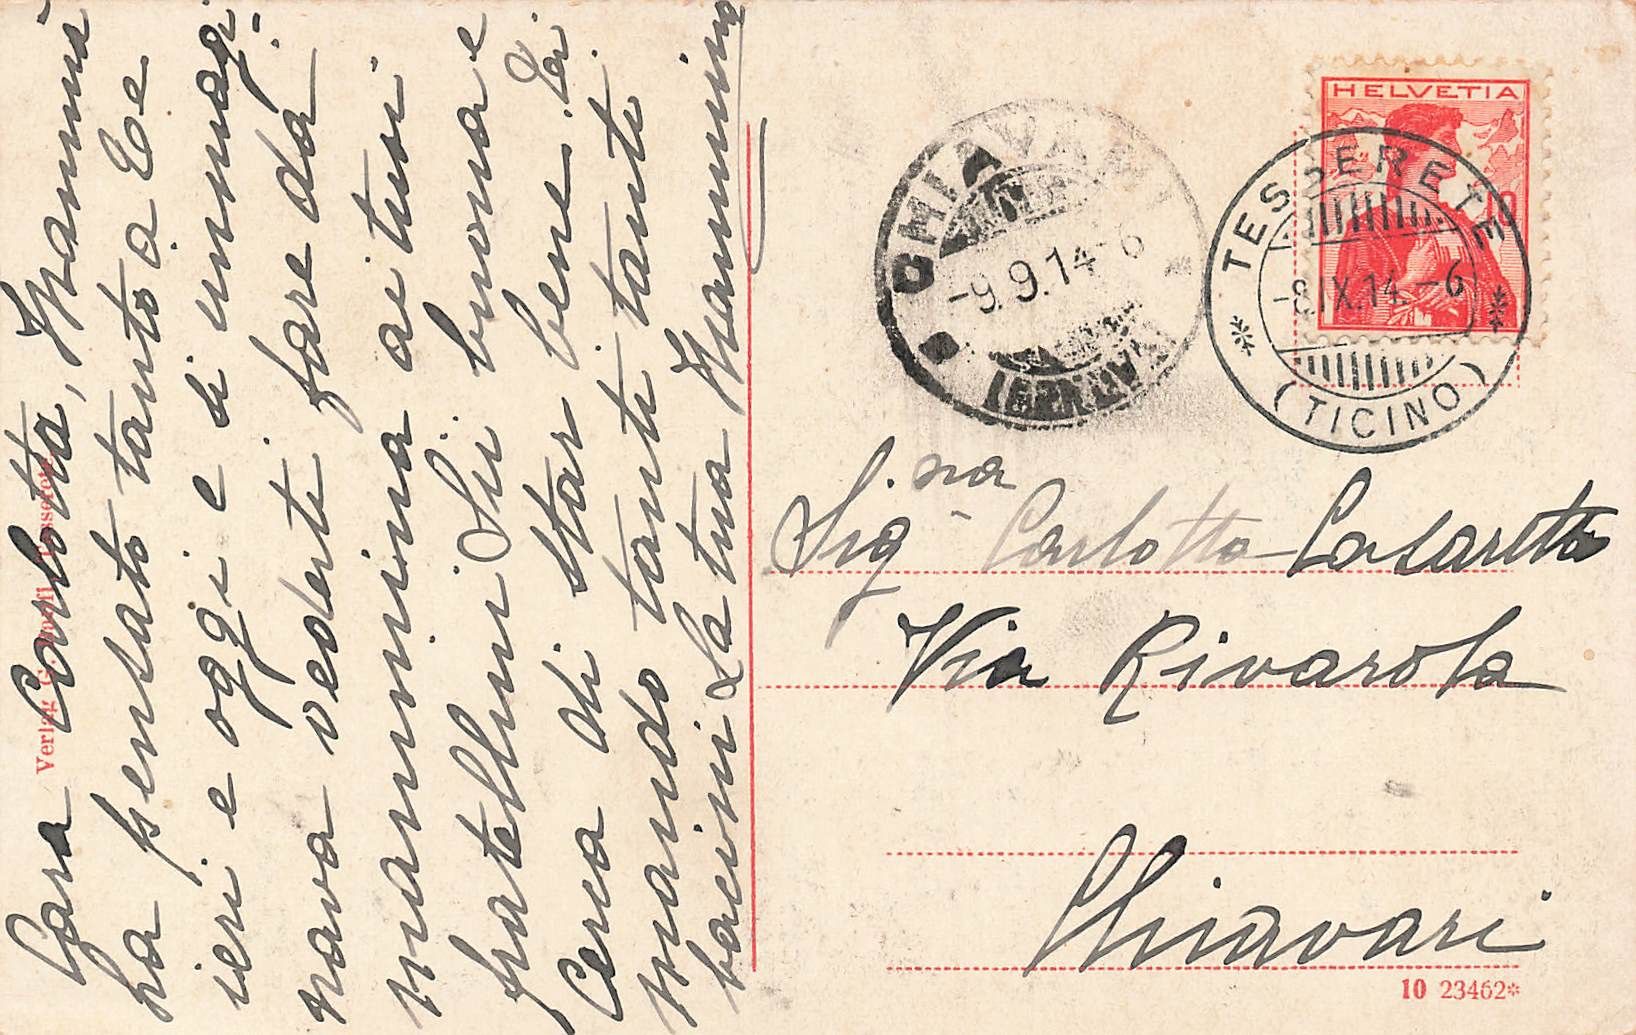 Cara Carlotta, Mammà
ha pensato tanto a te
ieri e oggi e di immagi-
nava vederti fare da
mammina ai tuoi
fratellini Sii buona e
cerca di star bene. Ti
mando tanti tanti tanti
bacioni La tua Mammina
Verlag G. Tesserete
HELVETIA
10
TESSERETE
-8.IX.14.-6
(TICINO)
CHIAVARI
-9.9.14-6
(GENOVA)
Sig.na Carlotta Casaretto
Via Rivarola
Chiavari
10 23462*